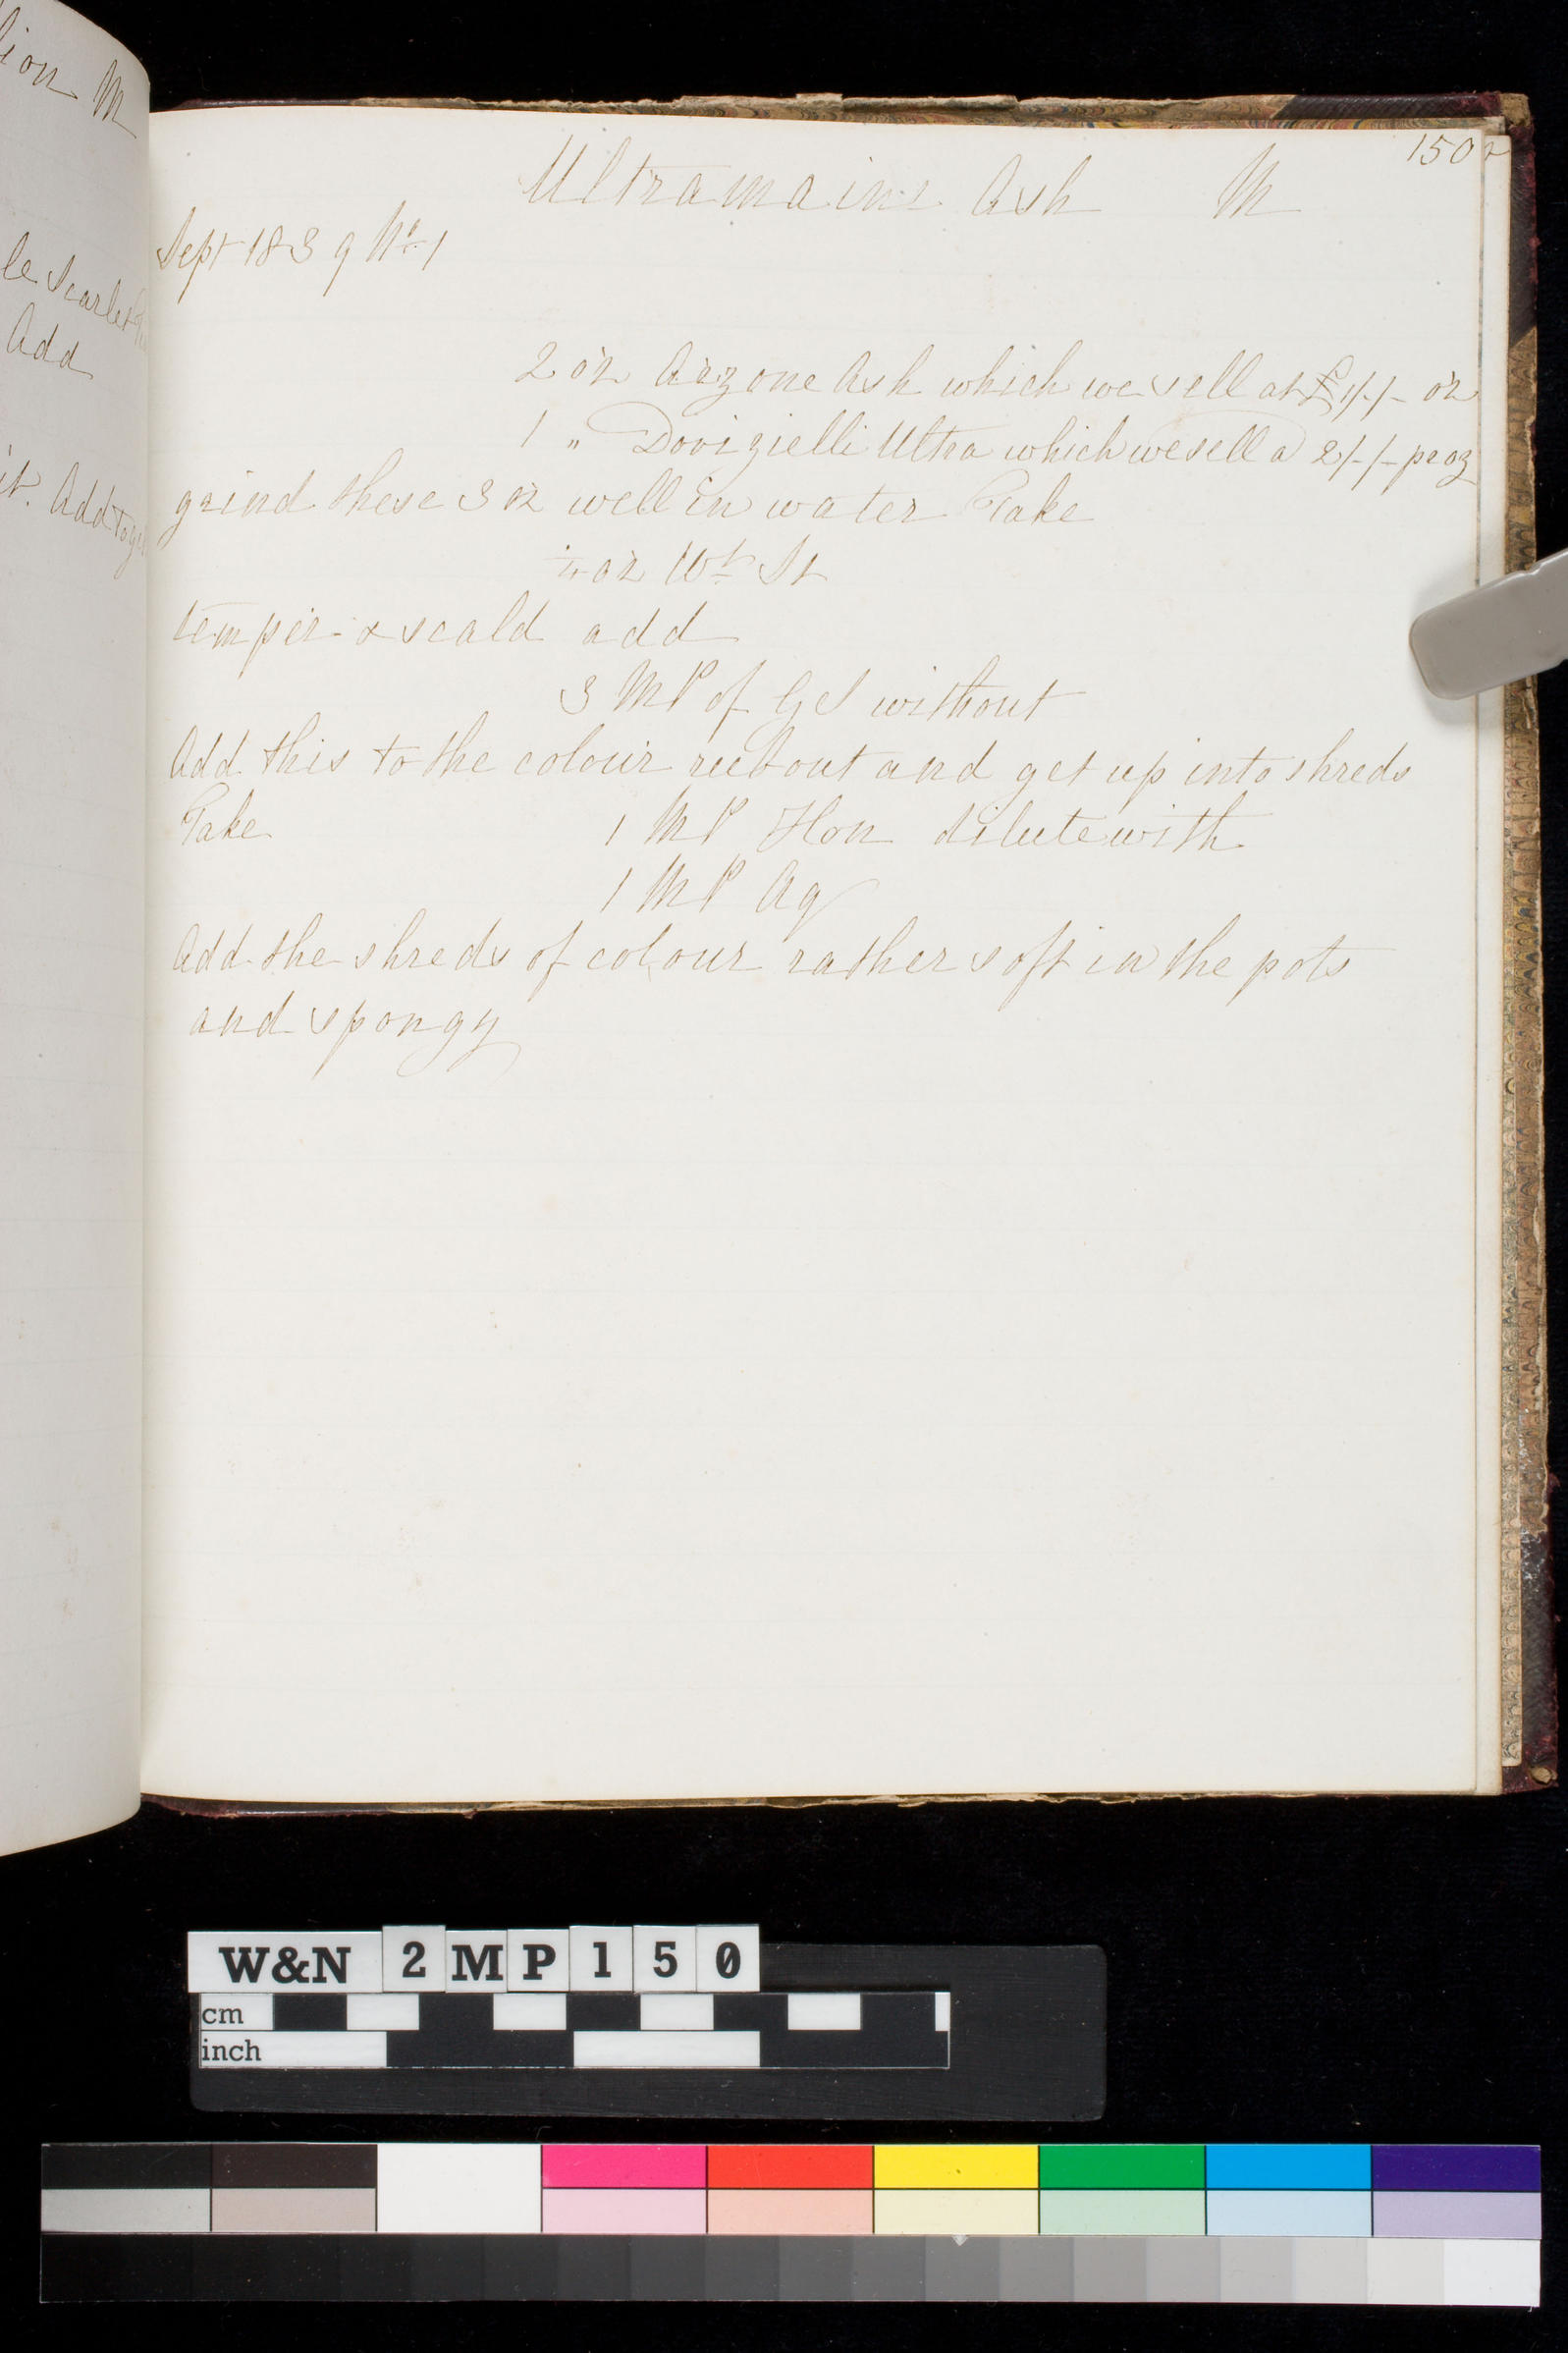 ion M
le Scarlet
Add
it. Add toge
150
Ultramaine Ash M
Sept 1839 No 1
2 oz Arzone Ash which we sell at £1/-/- oz
1 " Dovizielli Ultra which we sell a 2/-/- pr oz
grind these 3 oz well in water Take
¼ oz Wt St
temper & scald add
3 MP of GS without
Add this to the colour rub out and get up into shreds
Take 1 MP Hon dilute with
1 MP Aq
Add the shreds of colour rather soft in the pots
and spongy
W&N 2MP150
cm
inch